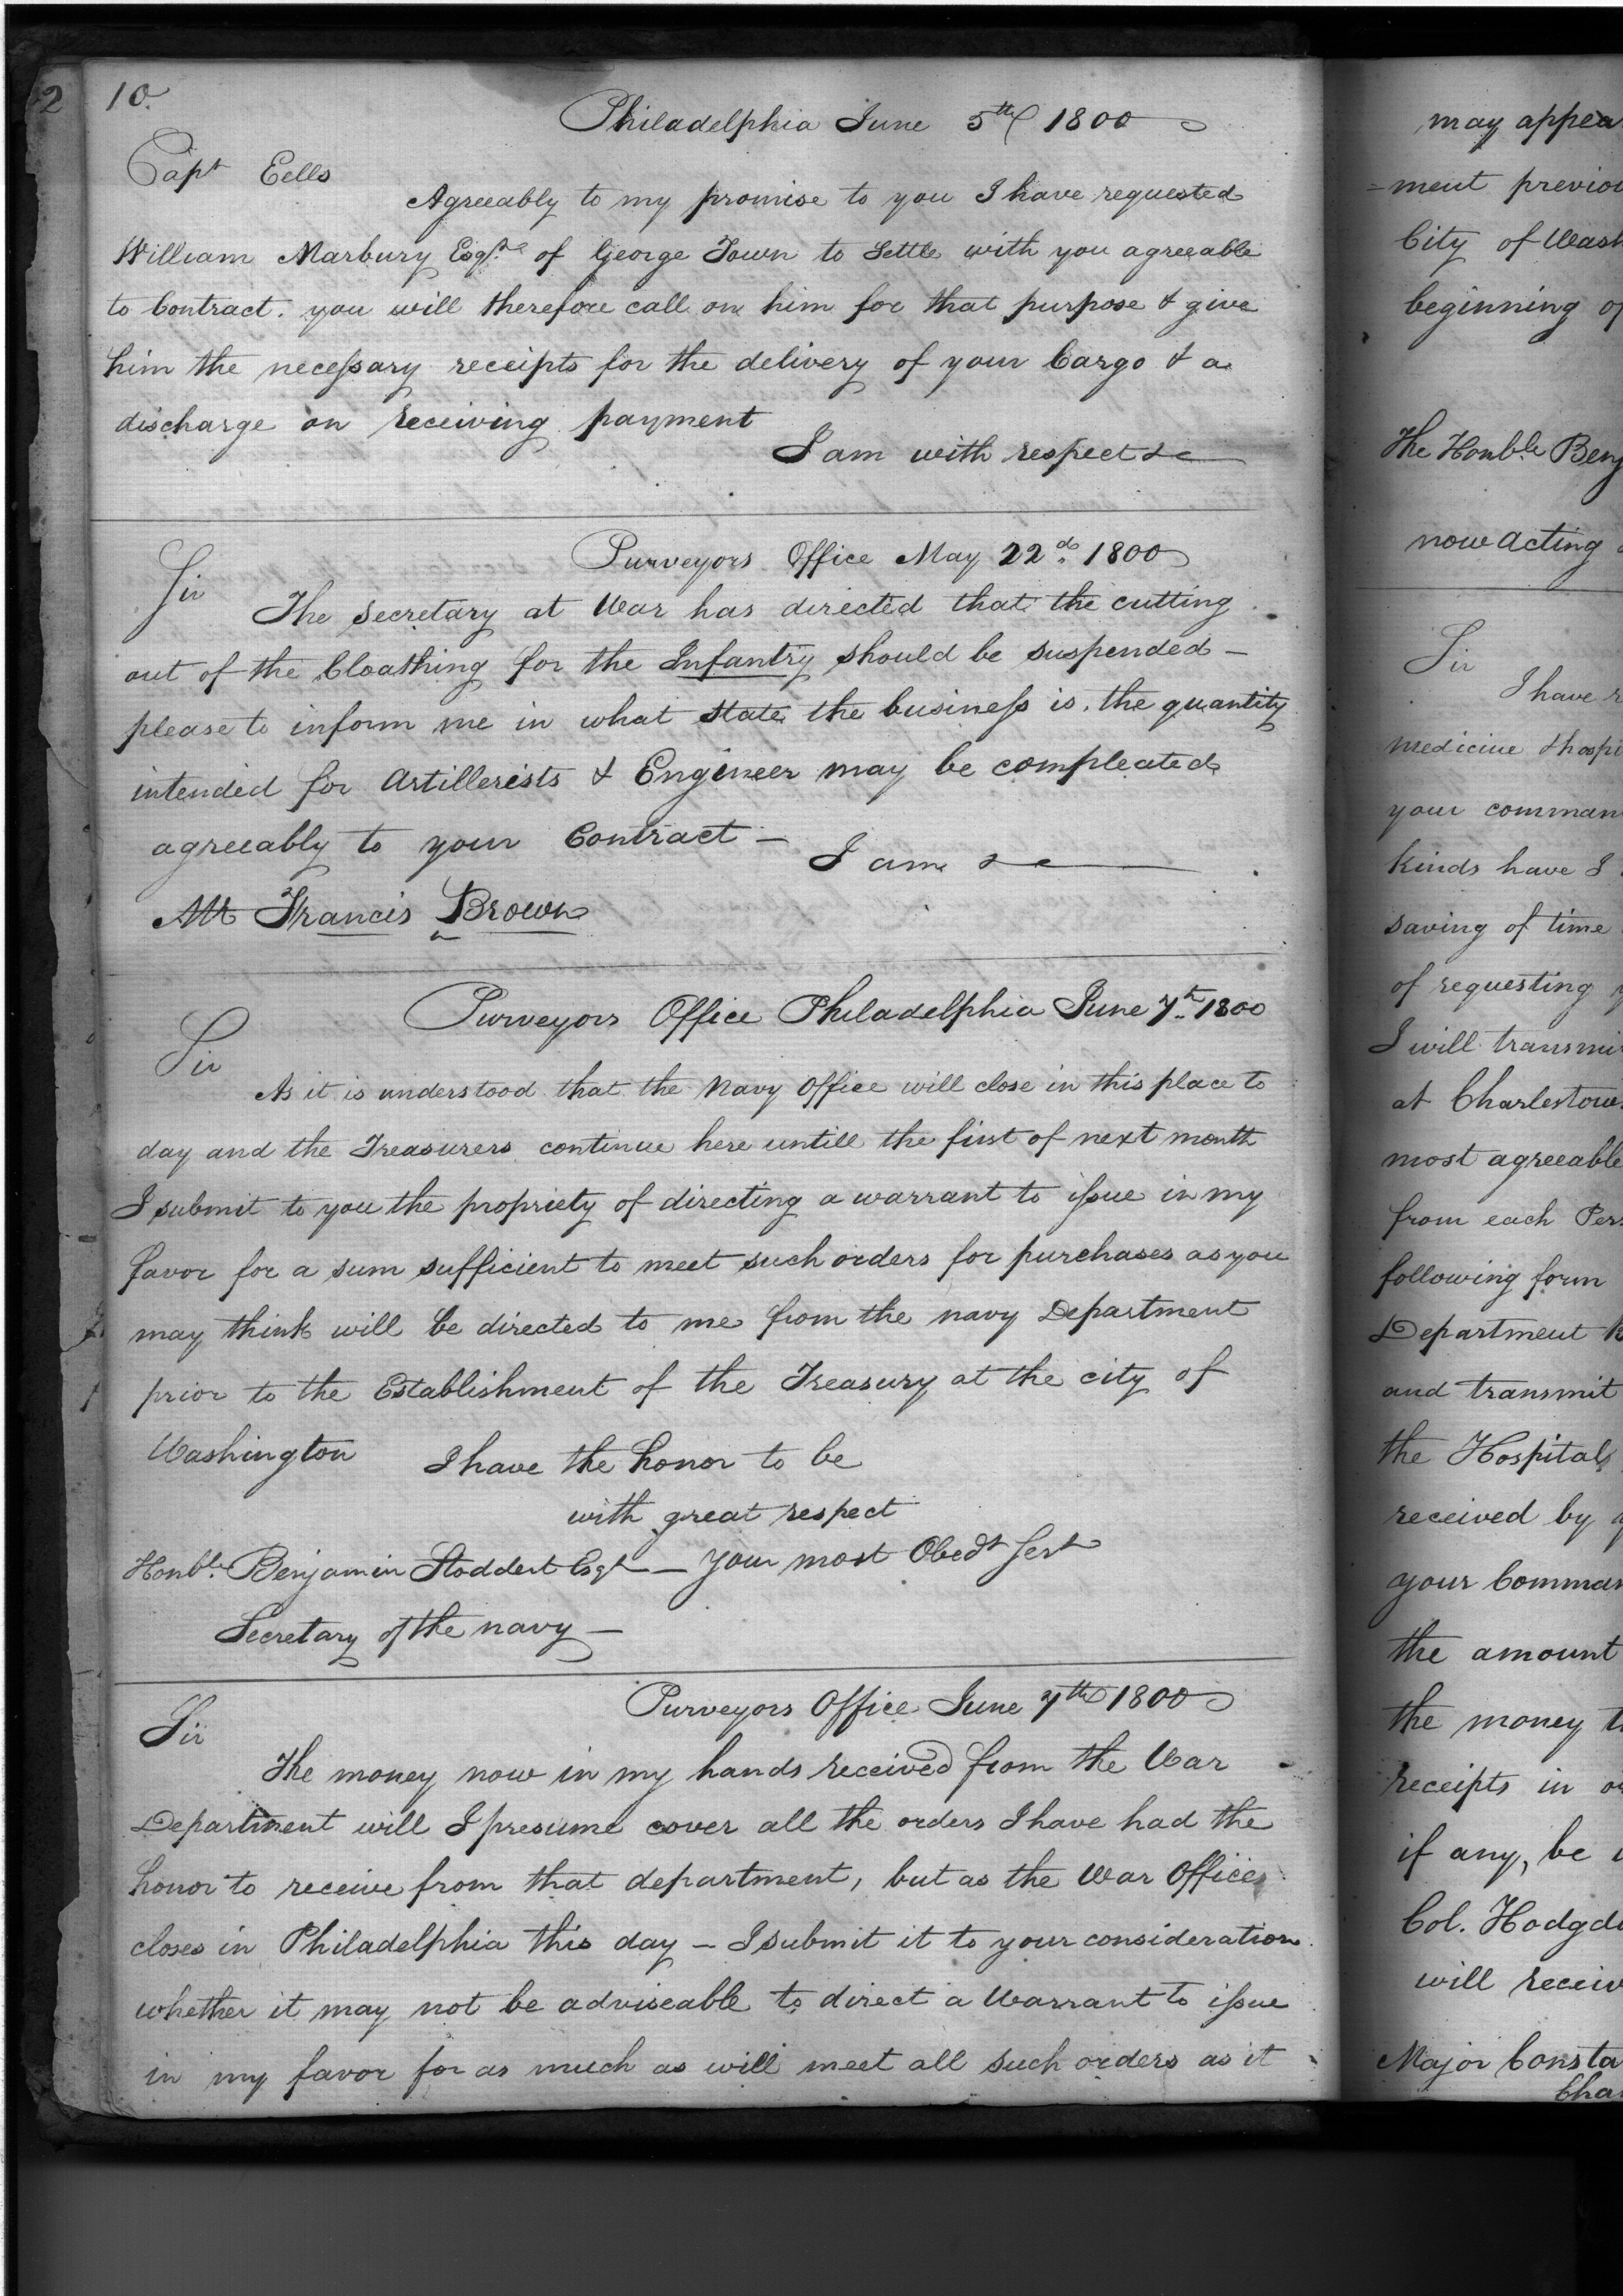 10.
Philadelphia June 5th 1800
Capt Eells
Agreeably to my promise to you I have requested
William Marbury Esqre of George Town to Settle with you agreeable
to Contract. you will therefore call on him for that purpose & give
him the necessary receipts for the delivery of your Cargo & a
discharge on receiving payment
I am with respect &c
Purveyors Office May 22d 1800
Sir
The Secretary at War has directed that the cutting
out of the Cloathing for the Infantry should be suspended —
please to inform me in what state the business is. the quantity
intended for Artillerists & Engineer may be compleated
agreeably to your Contract —
I am &c
Mr Francis Brown
Purveyors Office Philadelphia June 7th 1800
Sir
As it is understood that the Navy Office will close in this place to
day and the Treasurers continue here untill the first of next month
I submit to you the propriety of directing a warrant to issue in my
favor for a sum sufficient to meet such orders for purchases as you
may think will be directed to me from the navy Department
prior to the Establishment of the Treasury at the city of
Washington I have the honor to be
with great respect
Honble Benjamin Stoddert Esqr — Your most Obedt Sert
Secretary of the navy —
Purveyors Office June 7th 1800
Sir
The money now in my hands received from the War
Department will I presume cover all the orders I have had the
honor to receive from that department, but as the War Office
closes in Philadelphia this day — I submit it to your consideration
whether it may not be adviseable to direct a Warrant to issue
in my favor for as much as will meet all such orders as it
2
may appea
=ment previou
City of Wash
beginning of
The Honble Benj
now acting
Sir
I have
medicine & hospi
your comman
kinds have I
saving of time
of requesting
I will transmi
at Charlestow
most agreeable
from each Per
following form
Department
and transmit
the Hospital
received by
your Comman
the amount
the money t
receipts in o
if any, be
Col. Hodgd
will receiv
Major Consta
Cha